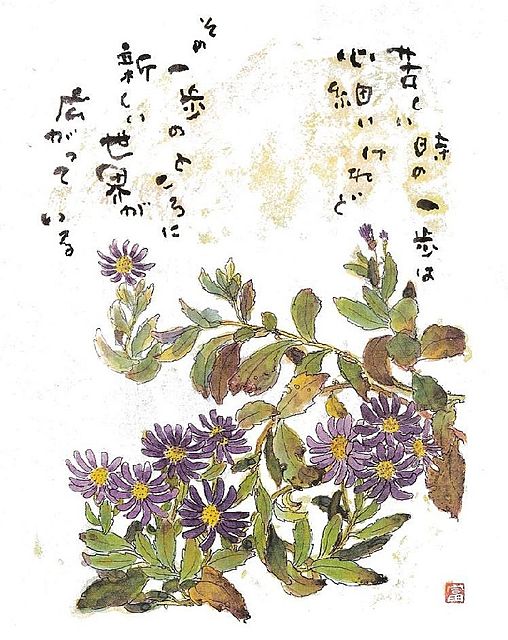 苦しい時の一歩は
心細いけれど
その一歩のところに
新しい世界が
広がっている
富